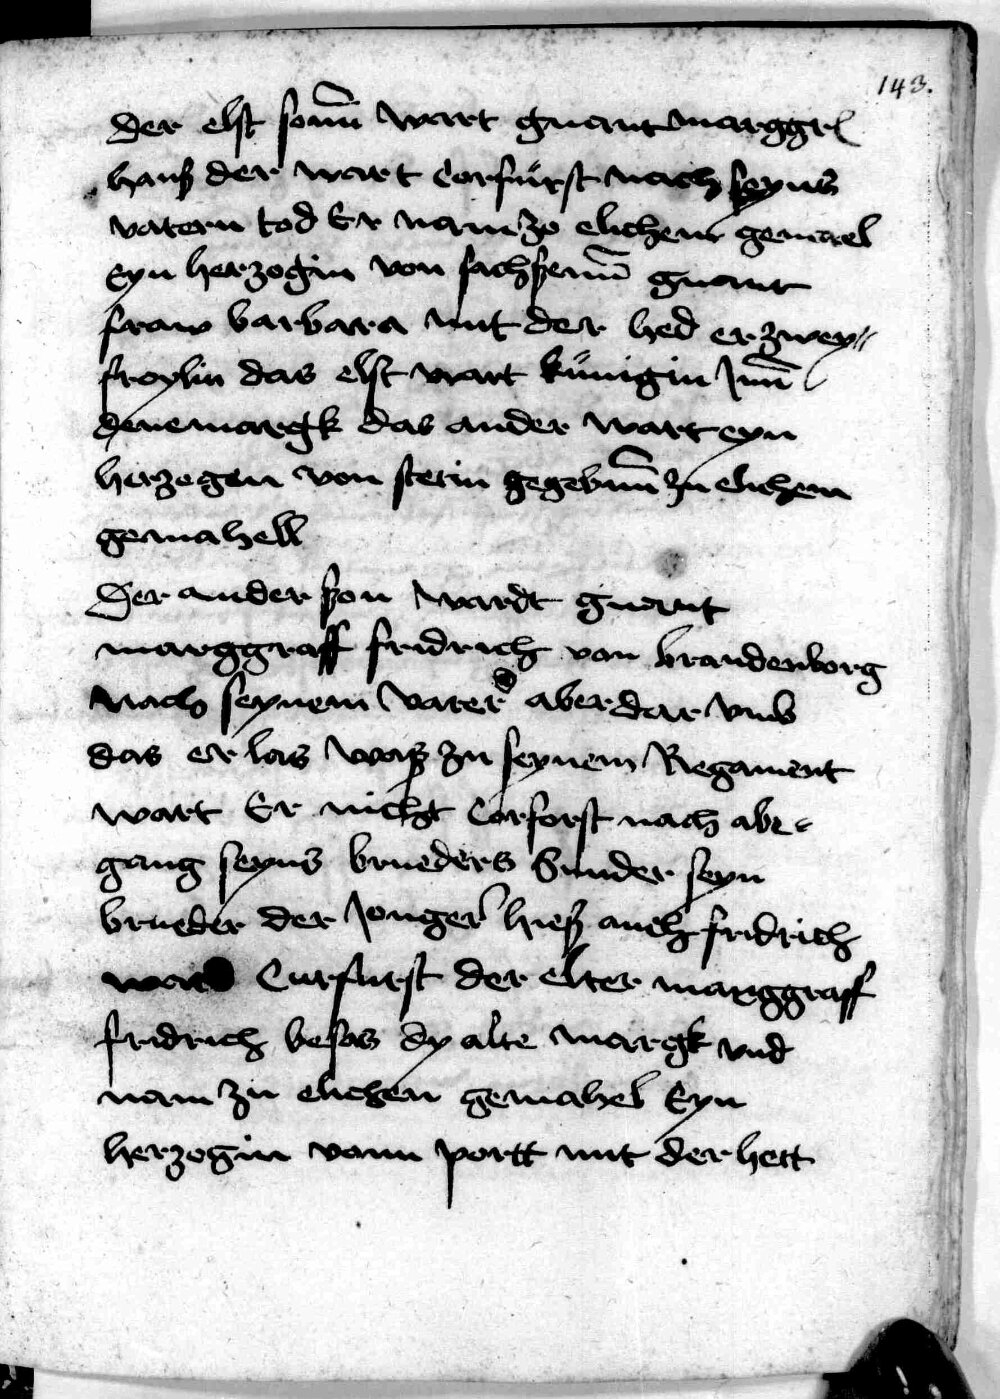 143.
Der elst sonn wart gnant marggr
hanß der wart Corfürst nach seyns
vatern tod Er nam zo elichem gemael
Eyn herzogin von sachßenn gnant
fraw barbara mit der hed er zwey
froylin das elst wart künigin Jnn
denemargk das ander wart eyn
herzogen von stetin gegebenn zu elichem
gemahell
Der ander ßon wardt gnant
marggraff fridrich von brandenborg
nach seynem vater aber dar vmb
das er las waß zu seynem Regament
wart Er nicht Corforst nach abe-
gang seyns brueders Sunder seyn
brueder der Jonger hieß auch fridrich
ward Curfurst der elter marggraff
fridrich besas dy alte margk vnd
nam zu elichen gemahel Eyn
herzogin vonn portt mit der hett